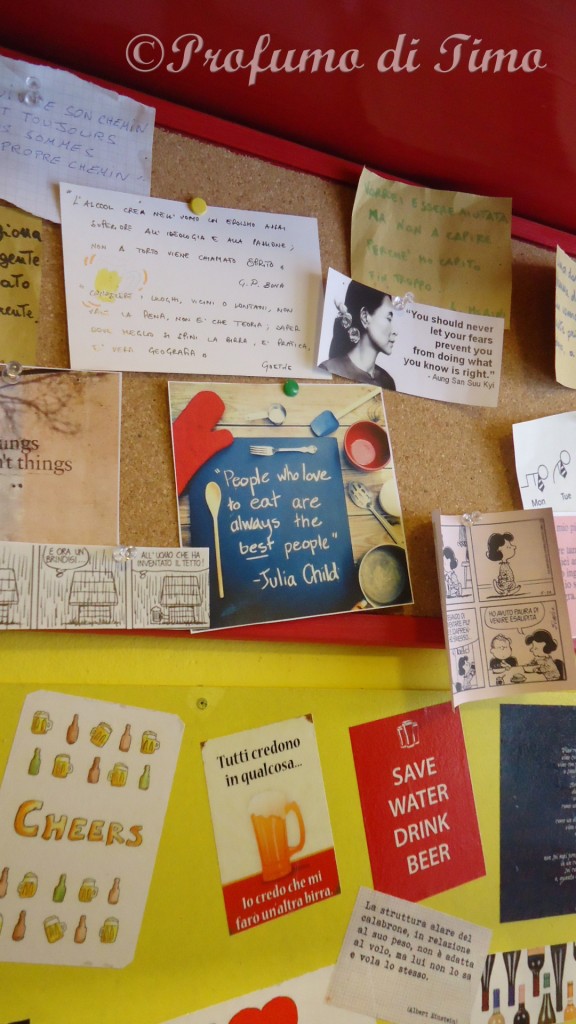 ©Profumo di Timo
SON CHEMIN
TOUJOURS
SOMMES
PROPRE CHEMIN"
"L'ALCOOL CREA NELL'UOMO UN EROISMO ASSAI
SUPERIORE ALL'IDEOLOGIA E ALLA PASSIONE;
NON A TORTO VIENE CHIAMATO SPIRITO"
G.P. BONA
"CONOSCERE I LUOGHI, VICINI O LONTANI, NON
VALE LA PENA, NON È CHE TEORIA; SAPER
DOVE MEGLIO SI SPINI LA BIRRA, È PRATICA,
È VERA GEOGRAFIA"
GOETHE
VORREI ESSERE AIUTATA
MA NON A CAPIRE
PERCHÉ HO CAPITO
FIN TROPPO
"You should never
let your fears
prevent you
from doing what
you know is right."
- Aung San Suu Kyi
things
"People who love
to eat are
always the
best people"
-Julia Child
Mon
Tue
E ORA UN
BRINDISI!
ALL'UOMO CHE HA
INVENTATO IL TETTO!
HO AVUTO PAURA DI
VENIRE ESAUDITA
CHEERS
Tutti credono
in qualcosa...
Io credo che mi
farò un'altra birra.
SAVE
WATER
DRINK
BEER
La struttura alare del
calabrone, in relazione
al suo peso, non è adatta
al volo, ma lui non lo sa
e vola lo stesso.
(Albert Einstein)